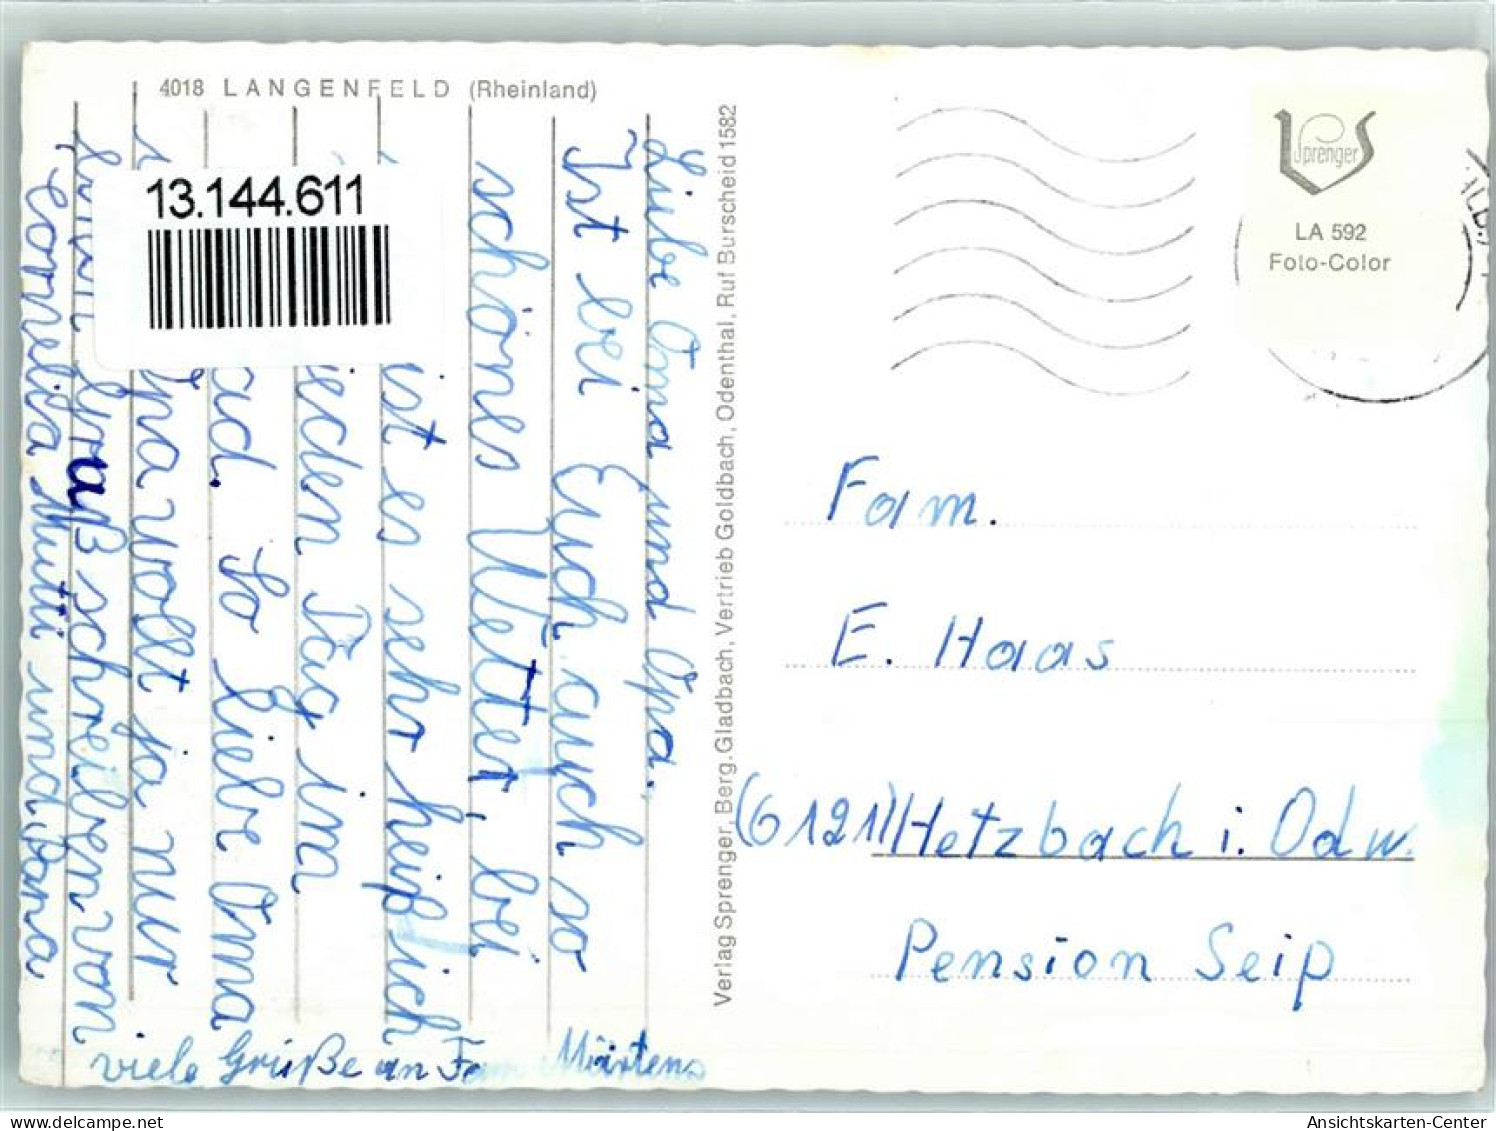 4018 LANGENFELD (Rheinland)
Liebe Oma und Opa.
Ist bei Euch auch so
schönes Wetter, bei
ist es sehr heiß ich
jeden Tag im
ad. So liebe Oma
Opa wollt ja nur
graß schreiben von
Cornelia Mutti und Papa
viele Grüße an Fam Märtens
13.144.611
Verlag Sprenger, Berg. Gladbach, Vertrieb Goldbach, Odenthal, Ruf Burscheid 1582
Sprenger
LA 592
Foto-Color
Fam.
E. Haas
(6121) Hetzbach i. Odw.
Pension Seip
Ansichtskarten-Center